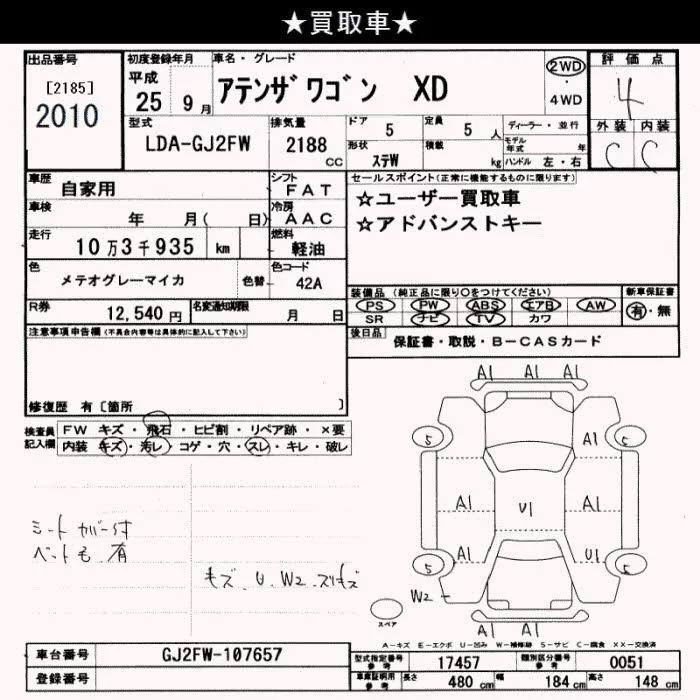 ★買取車★
出品番号 初度登録年月 車名・グレード 2WD 評価点
[2185] 平成 アテンザワゴン XD ・ 4
2010 25 9月 4WD 外装 内装
型式 排気量 ドア 定員 ディーラー・並行 C C
LDA-GJ2FW 2188 CC 5 5 人 モデル年式 年
形状 積載
ステW kg ハンドル 左・右
車歴 自家用 シフト FAT セールスポイント(正常に機能するものに限ります)
車検 年 月( 日) 冷房 AAC ☆ユーザー買取車
走行 10万3千935 km 燃料 軽油 ☆アドバンストキー
色 メテオグレーマイカ 色替 色コード 42A
R券 12,540 円 名変通知期限 月 日
装備品 (純正品に限り○をつけてください) 新車保証書
PS PW ABS エアB AW 有・無
SR ナビ TV カワ
注意事項申告欄(不具合内容等は具体的に記入して下さい)
後日品 保証書・取説・B-CASカード
修復歴 有〔箇所 〕
検査員記入欄 FW キズ・飛石・ヒビ割・リペア跡・×要
内装 キズ・汚レ・コゲ・穴・スレ・キレ・破レ
A1 A1 A1
5 A1 5
A1 U1 A1
A1 U1
5 5
シートカバー付
ペットも有
キズ、U、W2、スリキズ
W2
スペア
A1 A1
A-キズ E-エクボ U-凹み W-補修跡 S-サビ C-腐食 XX-交換済
車台番号 GJ2FW-107657
登録番号
型式指定番号 参考 17457 類別区分番号 参考 0051
車庫証明用 参考 長さ 480 cm 幅 184 cm 高さ 148 cm